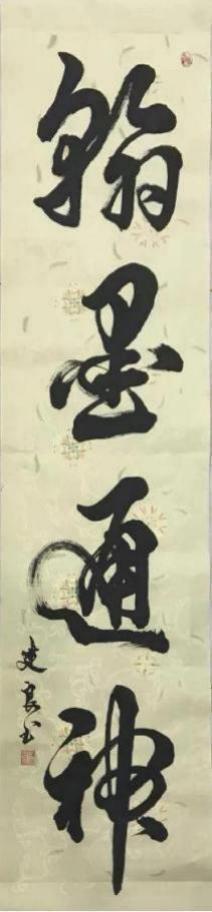 翰墨通神
建良书